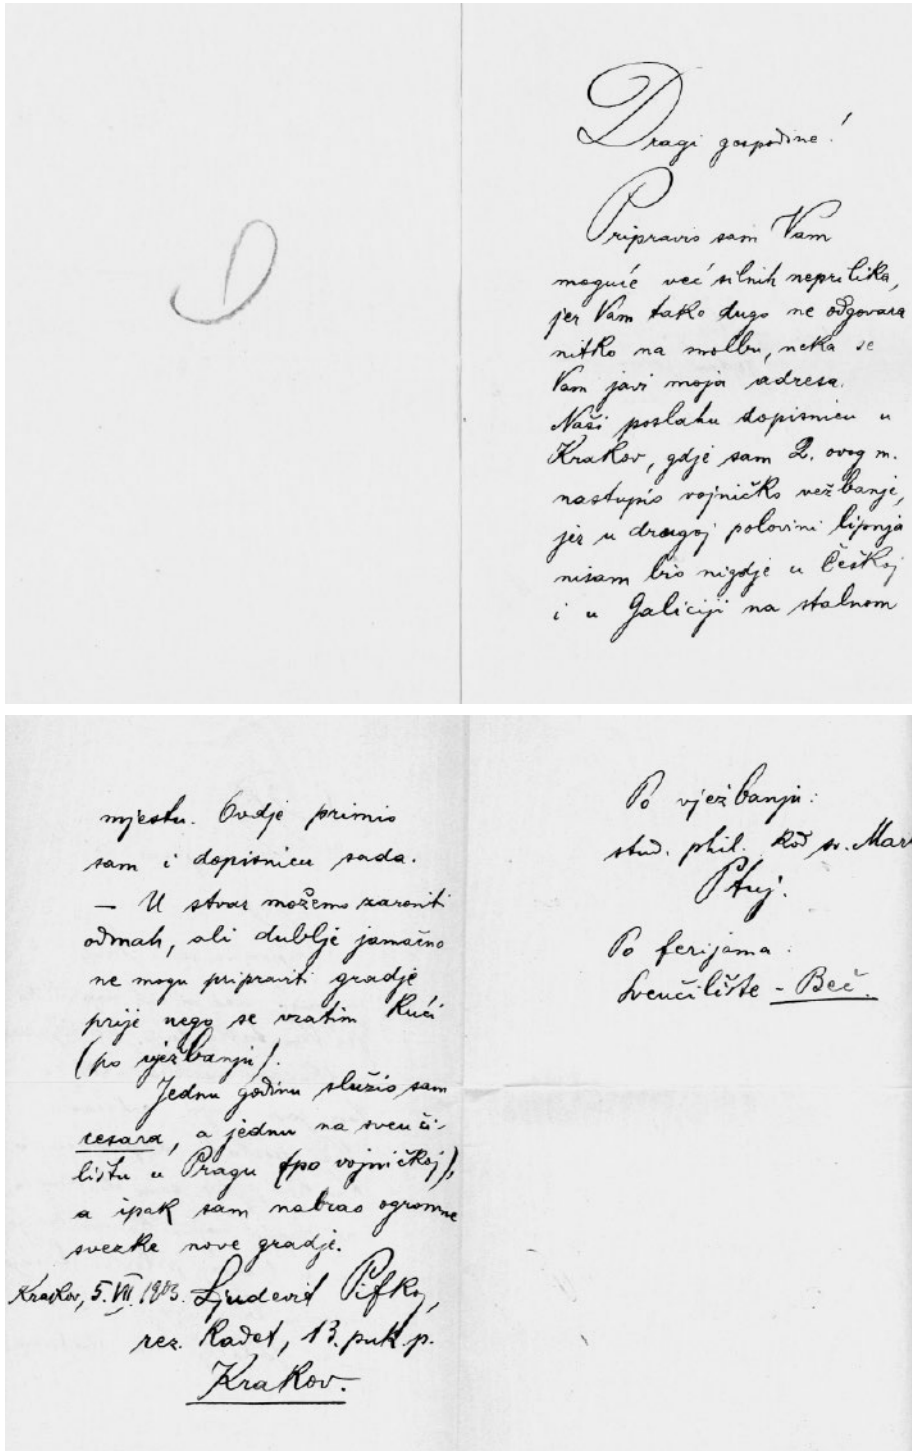 Dragi gospodine!
Pripravio sam Vam
moguće već silnih neprilika,
jer Vam tako dugo ne odgovara
nitko na molbu, neka se
Vam javi moja adresa.
Naši poslahu dopisnicu u
Krakov, gdje sam 2. ovog m.
nastupio vojničko vežbanje,
jer u drugoj polovini lipnja
nisam bio nigdje u Češkoj
i u Galiciji na stalnom
mjestu. Ovdje primio
sam i dopisnicu sada.
— U stvar možemo zaroniti
odmah, ali dublje jamačno
ne mogu pripraviti gradje
prije nego se vratim kući
(po vježbanju).
Jednu godinu služio sam
cesara, a jednu na sveuči-
lištu u Pragu (po vojničkoj),
a ipak sam nabrao ogromne
svezke nove gradje.
Krakov, 5. VII. 1903. Ljudevit Pifkoj,
rez. kadet, 13. puk. p.
Krakov.
Po vježbanju:
stud. phil. kod sv. Mar
Ptuj.
Po ferijama:
Sveučilište - Beč.